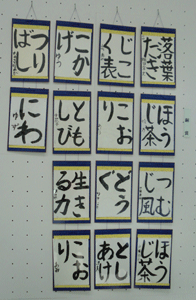 落葉
たき
ほう
じ茶
つむ
じ風
ほう
じ茶
じこ
く表
こお
り
どう
ぐ
とし
あけ
こか
げ
とも
しび
生き
る力
こお
り
つり
ばし
にわ